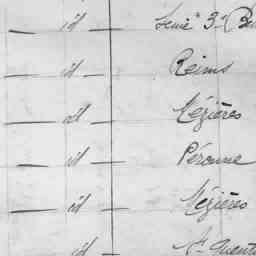 — id — Série 3e
— id — Reims
— id — Mézières
— id — Péronne
— id — Mézières
— id — St Quentin